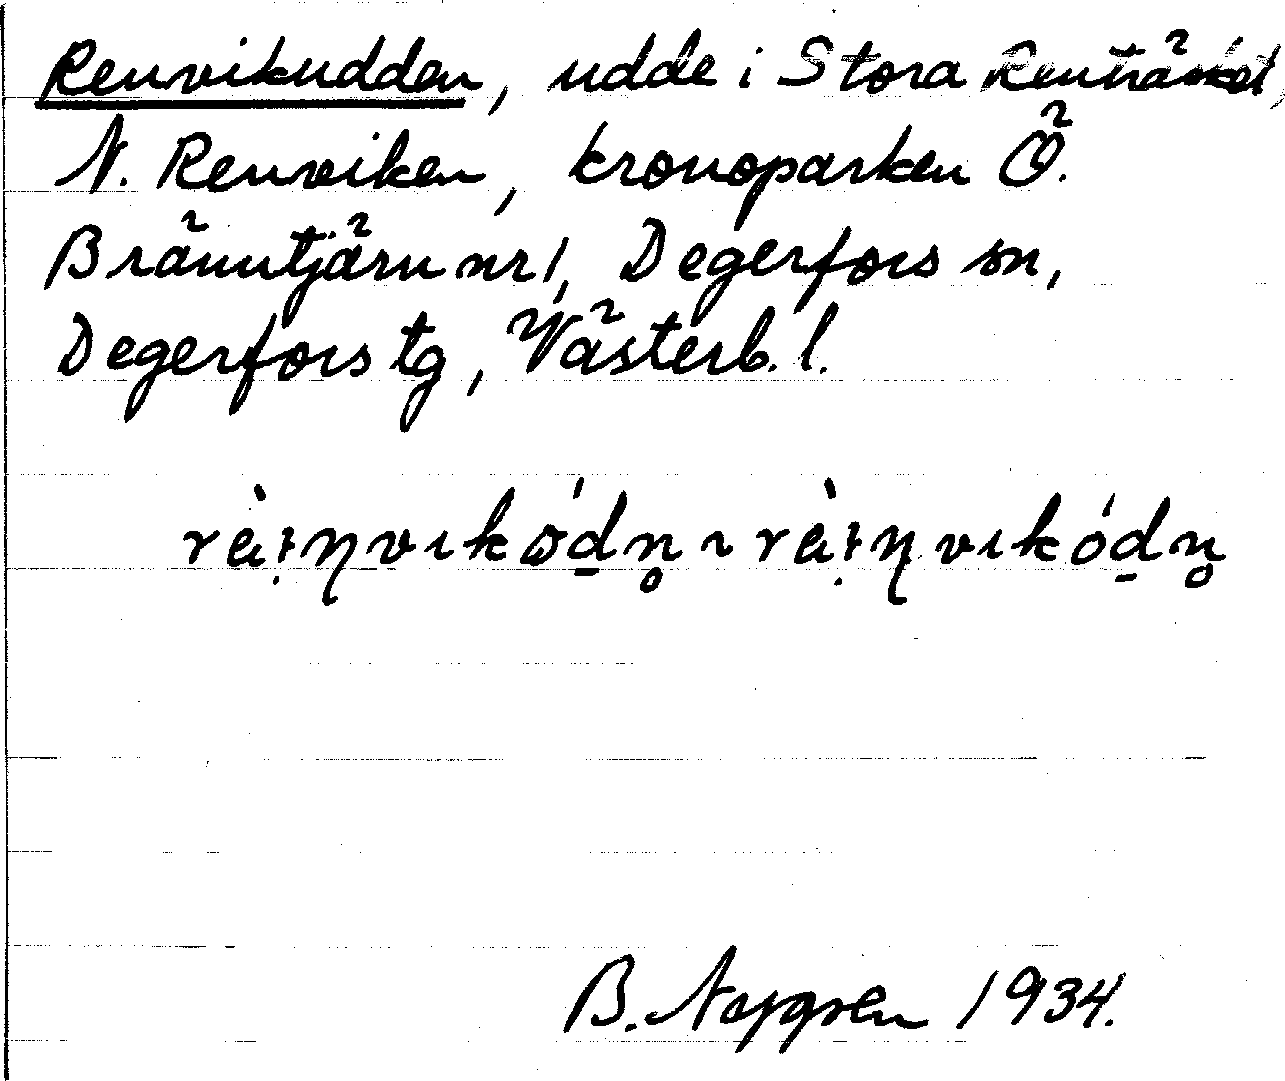 Renvikudden, udde i Stora Renträsket,
N. Renviken, kronoparken Ö.
Bränntjärn nr 1, Degerfors sn,
Degerfors tg, Västerb. l.
B. Nygren 1934.